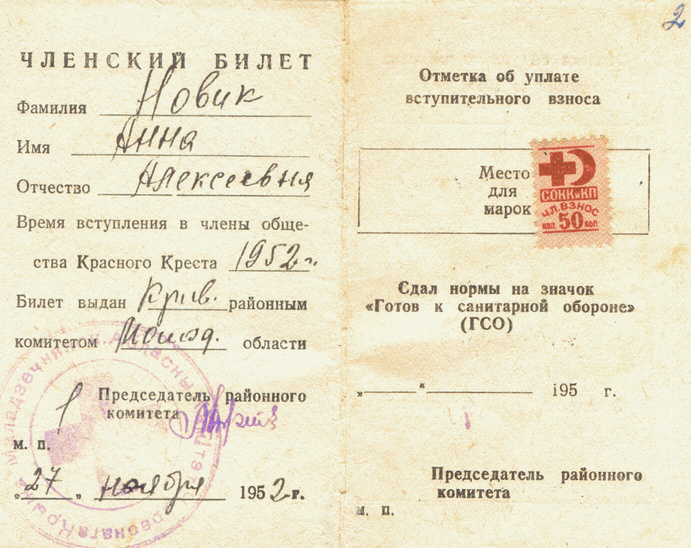 ЧЛЕНСКИЙ БИЛЕТ
Фамилия Новик
Имя Анна
Отчество Алексеевна
Время вступления в члены обще-
ства Красного Креста 1952 г.
Билет выдан Крив. районным
комитетом области
Председатель районного
комитета
м. п.
„27" ноября 1952 г.
2
Отметка об уплате
вступительного взноса
Место
для
марок
СОКК и КП
ЧЛ. ВЗНОС
КОП. 50 КОП
Сдал нормы на значок
«Готов к санитарной обороне»
(ГСО)
„ “ 195 г.
Председатель районного
комитета
м. п.